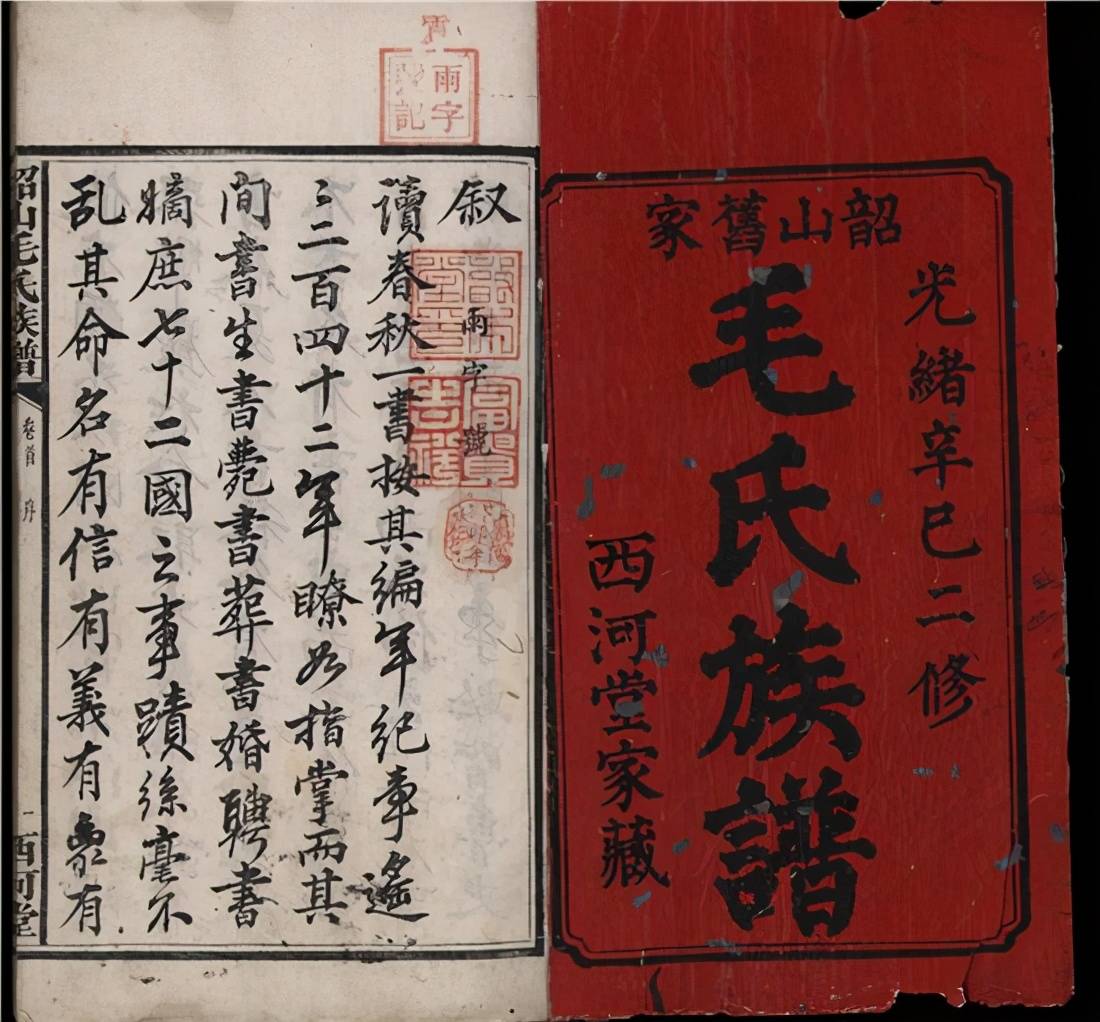 韶山舊家
光緒辛巳二修
毛氏族譜
西河堂家藏
雨字
號記
叙
雨字號
富貴
吉祥
讀春秋一書按其編年紀事遙
〻二百四十二年瞭如指掌而其
間書生書薨書葬書婚聘書
嫡庶七十二國之事蹟絲毫不
乱其命名有信有義有象有
韶山毛氏族譜
卷首
序
一
西河堂